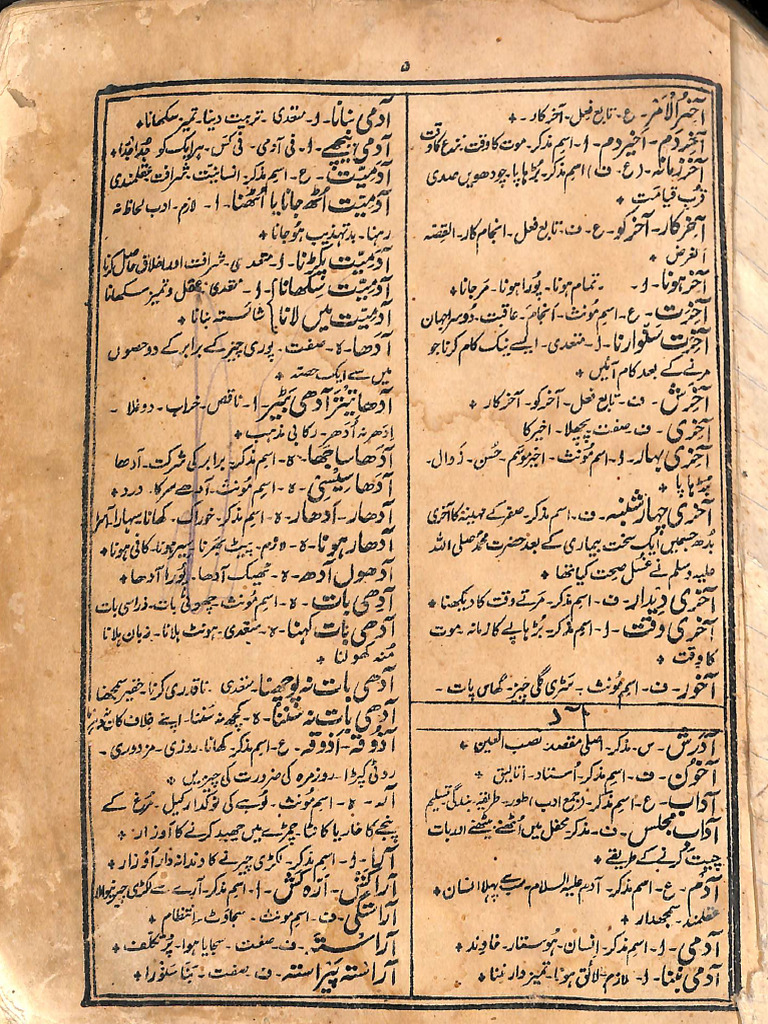 ۵
آخِرُالاَمر۔ ع۔ تابع فعل۔ آخرکار۔ *
آخِردَم۔ اخیردم۔ ا۔ اسم مذکر۔ موت کا وقت۔ نزع کا وقت
آخرزمانہ۔ (ع ف) اسم مذکر۔ بڑھاپا۔ چودھویں صدی
قربِ قیامت *
آخِرکار۔ آخرکو۔ ع۔ ف۔ تابع فعل۔ انجام کار۔ القصہ
الغرض *
آخرہونا۔ ا۔ تمام ہونا۔ پُورا ہونا۔ مرجانا *
آخِرَت۔ ع۔ اسم مُونث۔ انجام۔ عاقبت۔ دُوسرا جہان
آخِرَت سَنْوارنا۔ ا۔ متعدی۔ ایسے نیک کام کرنا جو
مرنے کے بعد کام آئیں *
آخِرَش۔ ف۔ تابع فعل۔ آخرکو۔ آخرکار *
آخِری۔ ف۔ صفت۔ پچھلا۔ اخیرکا
آخِری بہار۔ ا۔ اسم مُونث۔ اخیر موسم۔ حُسن۔ زوال۔
بُڑھاپا *
آخِری چہار شنبہ۔ ف۔ اسم مذکر۔ صفر کے مہینہ کا آخری
بُدھ جسمیں ایک سخت بیماری کے بعد حضرت محمد صلی اللہ
علیہ وسلم نے غسل صحت کیا تھا
آخِری دِیدار۔ ف۔ اسم مذکر۔ مَرتے وقت کا دیکھنا *
آخِری وقت۔ ا۔ اسم مذکر۔ بُڑھاپے کا زمانہ۔ موت
کا وقت *
آخور۔ ف۔ اسم مُونث۔ سڑی گلی چیز۔ گھاس پات۔
آ۔د
آدرش۔ س۔ مذکر۔ اصلی مقصد نصب العین *
آخون۔ ف۔ اسم مذکر۔ اُستاد۔ اتالیق *
آداب۔ ع۔ اسم مذکر۔ (جمع ادب) طور۔ طریقہ۔ بندگی تسلیم
آداب مجلس۔ ف۔ مذکر۔ محفل میں اُٹھنے بیٹھنے اور بات
چیت کرنے کے طریقے *
آدم۔ ع۔ اسم مذکر۔ آدم علیہ السلام۔ سب سے پہلا انسان *
عقلمند۔ سمجھدار *
آدمی۔ ا۔ اسم مذکر۔ انسان۔ ہوشیار۔ خاوند *
آدمی بننا۔ ا۔ لازم۔ لائق ہونا۔ تمیزدار بننا *
آدمی بنانا۔ ا۔ متعدی۔ تربیت دینا۔ تمیز سکھانا *
آدمی پیچھے۔ ا۔ فی آدمی۔ فی کس۔ ہر ایک کو جُدا جُدا *
آدمیّت۔ ع۔ اسم مذکر۔ انسانیت۔ شرافت۔ عقلمندی
آدمیّت اُٹھ جانا یا اُٹھنا۔ ا۔ لازم۔ ادب لحاظ نہ
رہنا۔ بدتہذیب ہوجانا *
آدمیّت پکڑنا۔ ا۔ متعدی۔ شرافت اور اخلاق حاصل کرنا
آدمیّت سکھانا} ا۔ متعدی۔ عقل و تمیز سکھانا
آدمیّت میں لانا} شائستہ بنانا *
آدھا۔ ہ۔ صفت۔ پوری چیز کے برابر کے دو حصوں
میں سے ایک حصہ *
آدھا تیتر آدھی بٹیر۔ ا۔ ناقص۔ خراب۔ دوغلا۔
اِدھر نہ اُدھر۔ رکابی مذہب *
آدھا ساجھا۔ ہ۔ اسم مذکر۔ برابر کی شرکت۔ آدھا
آدھا سیسی۔ ہ۔ اسم مُونث۔ آدھے سر کا۔ درد *
آدھار۔ اَدھار۔ ہ۔ اسم مذکر۔ خوراک۔ کھانا۔ سہارا۔ آسرا
آدھار ہونا۔ ہ۔ لازم۔ پیٹ بھرنا۔ سیر ہونا۔ کافی ہونا *
آدھوں آدھ۔ ہ۔ ٹھیک آدھا۔ پُورا آدھا *
آدھی بات۔ ہ۔ اسم مُونث۔ چھوٹی بات۔ ذراسی بات
آدھی بات کہنا۔ ہ۔ متعدی۔ ہونٹ ہلانا۔ زبان ہلانا
مُنہ کھولنا *
آدھی بات نہ پوچھنا۔ متعدی۔ ناقدری کرنا۔ حقیر سمجھنا
آدھی بات نہ سُننا۔ ہ۔ کچھ نہ سُننا۔ اپنے خلاف کان
آذوقہ۔ آذوقہ۔ ع۔ اسم مذکر۔ کھانا۔ روزی۔ مزدوری۔
روٹی کپڑا۔ روزمرہ کی ضرورت کی چیزیں *
آر۔ ہ۔ اسم مُونث۔ لوہے کی نوکدار کیل۔ مُرغ کے
پنجے کا خار یا کانٹا۔ چمڑے میں چھید کرنے کا اوزار *
آرا۔ ا۔ اسم مذکر۔ لکڑی چیرنے کا دندانہ دار اَوزار *
آراکش۔ آرہ کش۔ ا۔ اسم مذکر۔ آرے سے لکڑی چیرنیوالا
آراستگی۔ ف۔ اسم مُونث۔ سجاوٹ۔ انتظام *
آراستہ۔ ف۔ صفت۔ سجایا ہوا۔ پُرتکلف *
آراستہ پَیراستہ۔ ف۔ صفت۔ بنا سنورا *